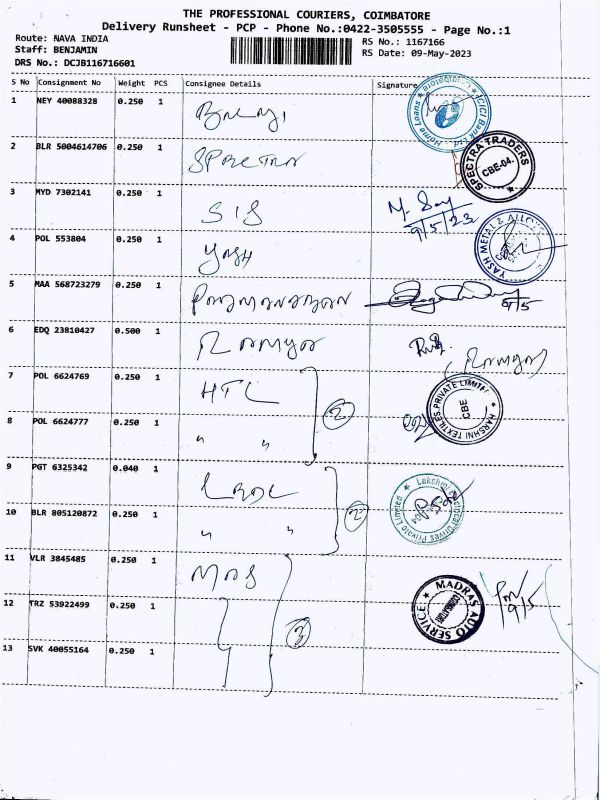 THE PROFESSIONAL COURIERS, COIMBATORE
Delivery Runsheet - PCP - Phone No.:0422-3505555 - Page No.:1
Route: NAVA INDIA
Staff: BENJAMIN
DRS No.: DCJB116716601
RS No.: 1167166
RS Date: 09-May-2023
S No Consignment No Weight PCS Consignee Details Signature
1 NEY 40088328 0.250 1
ICICI Bank Ltd Home Loans ★ Coimbatore ★
2 BLR 5004614706 0.250 1 SPECTRA
SPECTRA TRADERS ★ CBE-04.
3 MYD 7302141 0.250 1 SIS
9/5/23
4 POL 553804 0.250 1 YASH
YASH METAL & ALLOYS
5 MAA 568723279 0.250 1
9/5
6 EDQ 23810427 0.500 1 Ramya
(Ramya)
7 POL 6624769 0.250 1 HTL
2
HARSHNI TEXTILES PRIVATE LIMITED ★ CBE
8 POL 6624777 0.250 1 " "
9 PGT 6325342 0.040 1
2
Lakshmi Electrical Drives Private Limited ★
10 BLR 805120872 0.250 1 " "
11 VLR 3845485 0.250 1 MAS
3
★ MADRAS AUTO SERVICE ★ COIMBATORE
9/5
12 TRZ 53922499 0.250 1
13 SVK 40055164 0.250 1